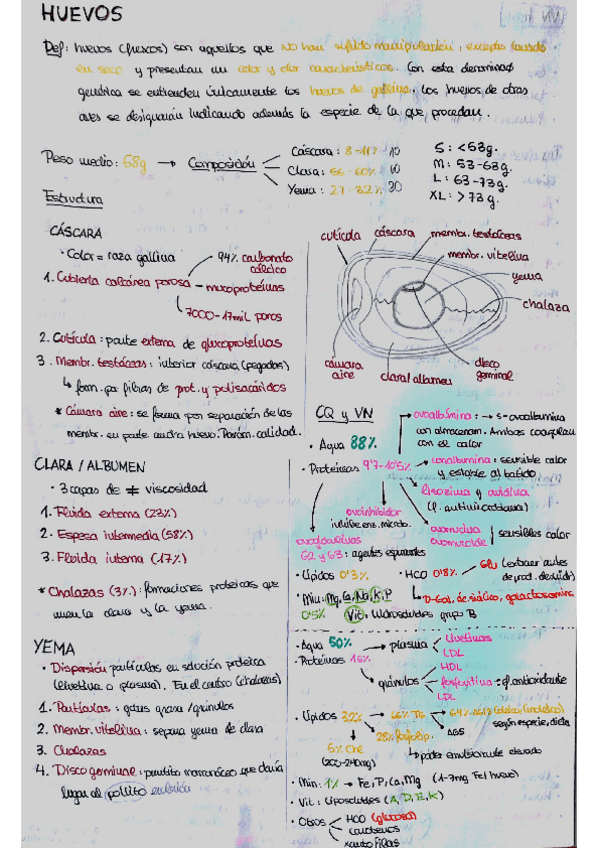 HUEVOS
Def: huevos (frescos) son aquellos que no han sufrido manipulación, excepto lavado
en seco y presentan un color y olor característicos. Con esta denominaø
genérica se entienden únicamente los huevos de gallina. Los huevos de otras
aves se designarán indicando además la especie de la que procedan.
Peso medio: 58g → Composición
Cáscara: 8-11% 10
Clara: 56-60% 60
Yema: 27-32% 30
S: <53g.
M: 53-63g.
L: 63-73g.
XL: >73g.
Estructura
CÁSCARA
· Color = raza gallina
1. Cubierta calcárea porosa - mucoproteínas
94% carbonato
cálcico
7000-17mil poros
2. Cutícula: parte externa de glucoproteínas
3. Membr. testáceas: interior cáscara (pegadas)
↳ form. por fibras de prot. y polisacáridos
* Cámara aire: se forma por separación de las
membr. en parte ancha huevo. Parám. calidad.
cutícula
cáscara
membr. testáceas
membr. vitelina
yema
chalaza
cámara
aire
clara/albumen
disco
germinal
CLARA / ALBUMEN
· 3 capas de ≠ viscosidad
1. Fluida externa (23%)
2. Espesa intermedia (58%)
3. Fluida interna (17%)
* Chalazas (3%): formaciones proteicas que
unen la clara y la yema.
CQ y VN
· Agua 88%
· Proteínas 9'7-10'5%
ovoalbúmina: → s-ovoalbumina
con almacenam. Ambas coagulan
con el calor
conalbumina: sensible calor
y estable al batido
lisozima y avidina
(p. antimicrobiana)
ovomucina
ovomucoide
sensibles calor
ovoinhibidor
inhibe enz. microb.
ovoglobulinas
G2 y G3: agentes espumantes
· Lípidos 0'3%
· HCO 0'8%
Glu (extraer antes
de prod. deshidr)
D-Gal, ác. siálico, galactosamina
· Min: Mg, Ca, Na, K, P
0'5%
Vit: Hidrosolubles grupo B
YEMA
· Dispersión partículas en solución proteica
(livetina o plasma). En el centro (chalazas)
1. Partículas: gotas grasa / gránulos
2. Membr. vitelina: separa yema de clara
3. Chalazas
4. Disco germinal: puntito marronáceo que daría
lugar al pollito
· Agua 50%
· Proteínas 16%
plasma
Livetinas
LDL
gránulos
HDL
fosfovitina: ef. antioxidante
LDL
· Lípidos 32%
66% TG
según especie, dieta
AGS
28% fosfolíp.
↳ poder emulsionante elevado
5% Chol
(200-240mg)
· Min: 1% → Fe, P, Ca, Mg (1-3mg Fe/huevo)
· Vit: Liposolubles (A, D, E, K)
· Otros
HCO (glucosa)
carotenos
xantofilas